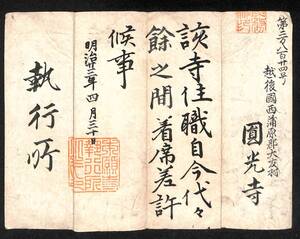 第三万八百廿四号
越後國西蒲原郡大友村
圓光寺
該寺住職自今代々
餘之間着席差許
候事
明治十三年四月三十日
執行所